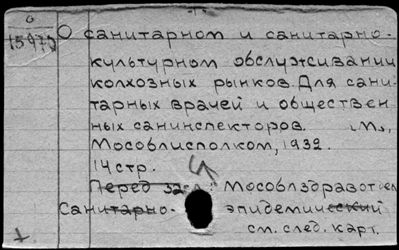 О
15970
О санитарном и санитарно-
культурном обслуживании
колхозных рынков. Для сани-
тарных врачей и обществен-
ных санинспекторов. М.,
Мособлисполком, 1932.
14 стр.
Перед загл.: Мособлздравотдел
Санитарно-эпидемический
см. след. карт.